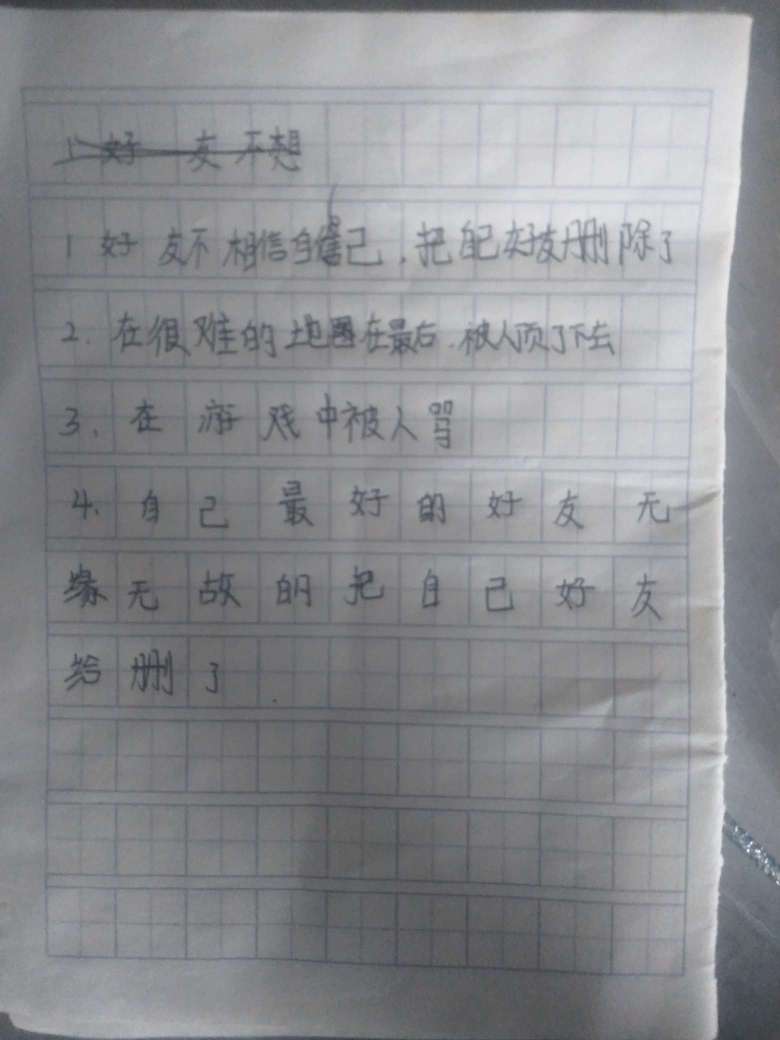 1 好友不想
1 好友不相信自己，把自己好友删除了
2. 在很难的地图在最后.被人顶了下去
3. 在游戏中被人骂
4. 自己最好的好友无
缘无故的把自己好友
给删了.